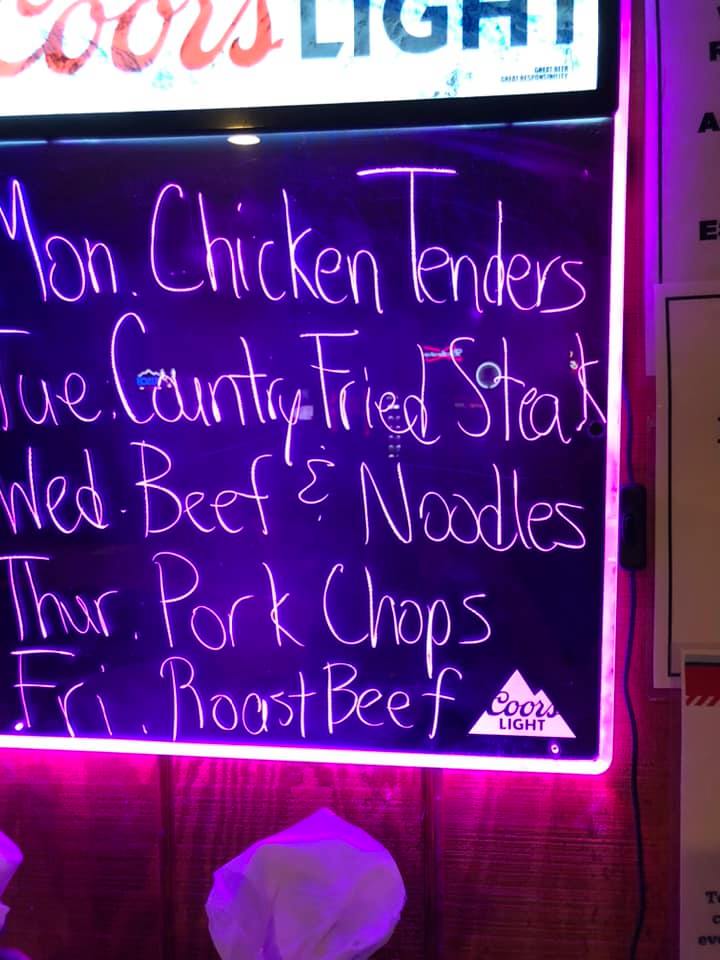 Coors LIGHT
GREAT BEER
GREAT RESPONSIBILITY
Mon. Chicken Tenders
Tue. Country Fried Steak
Wed. Beef & Noodles
Thur. Pork Chops
Fri. Roast Beef
Coors
LIGHT